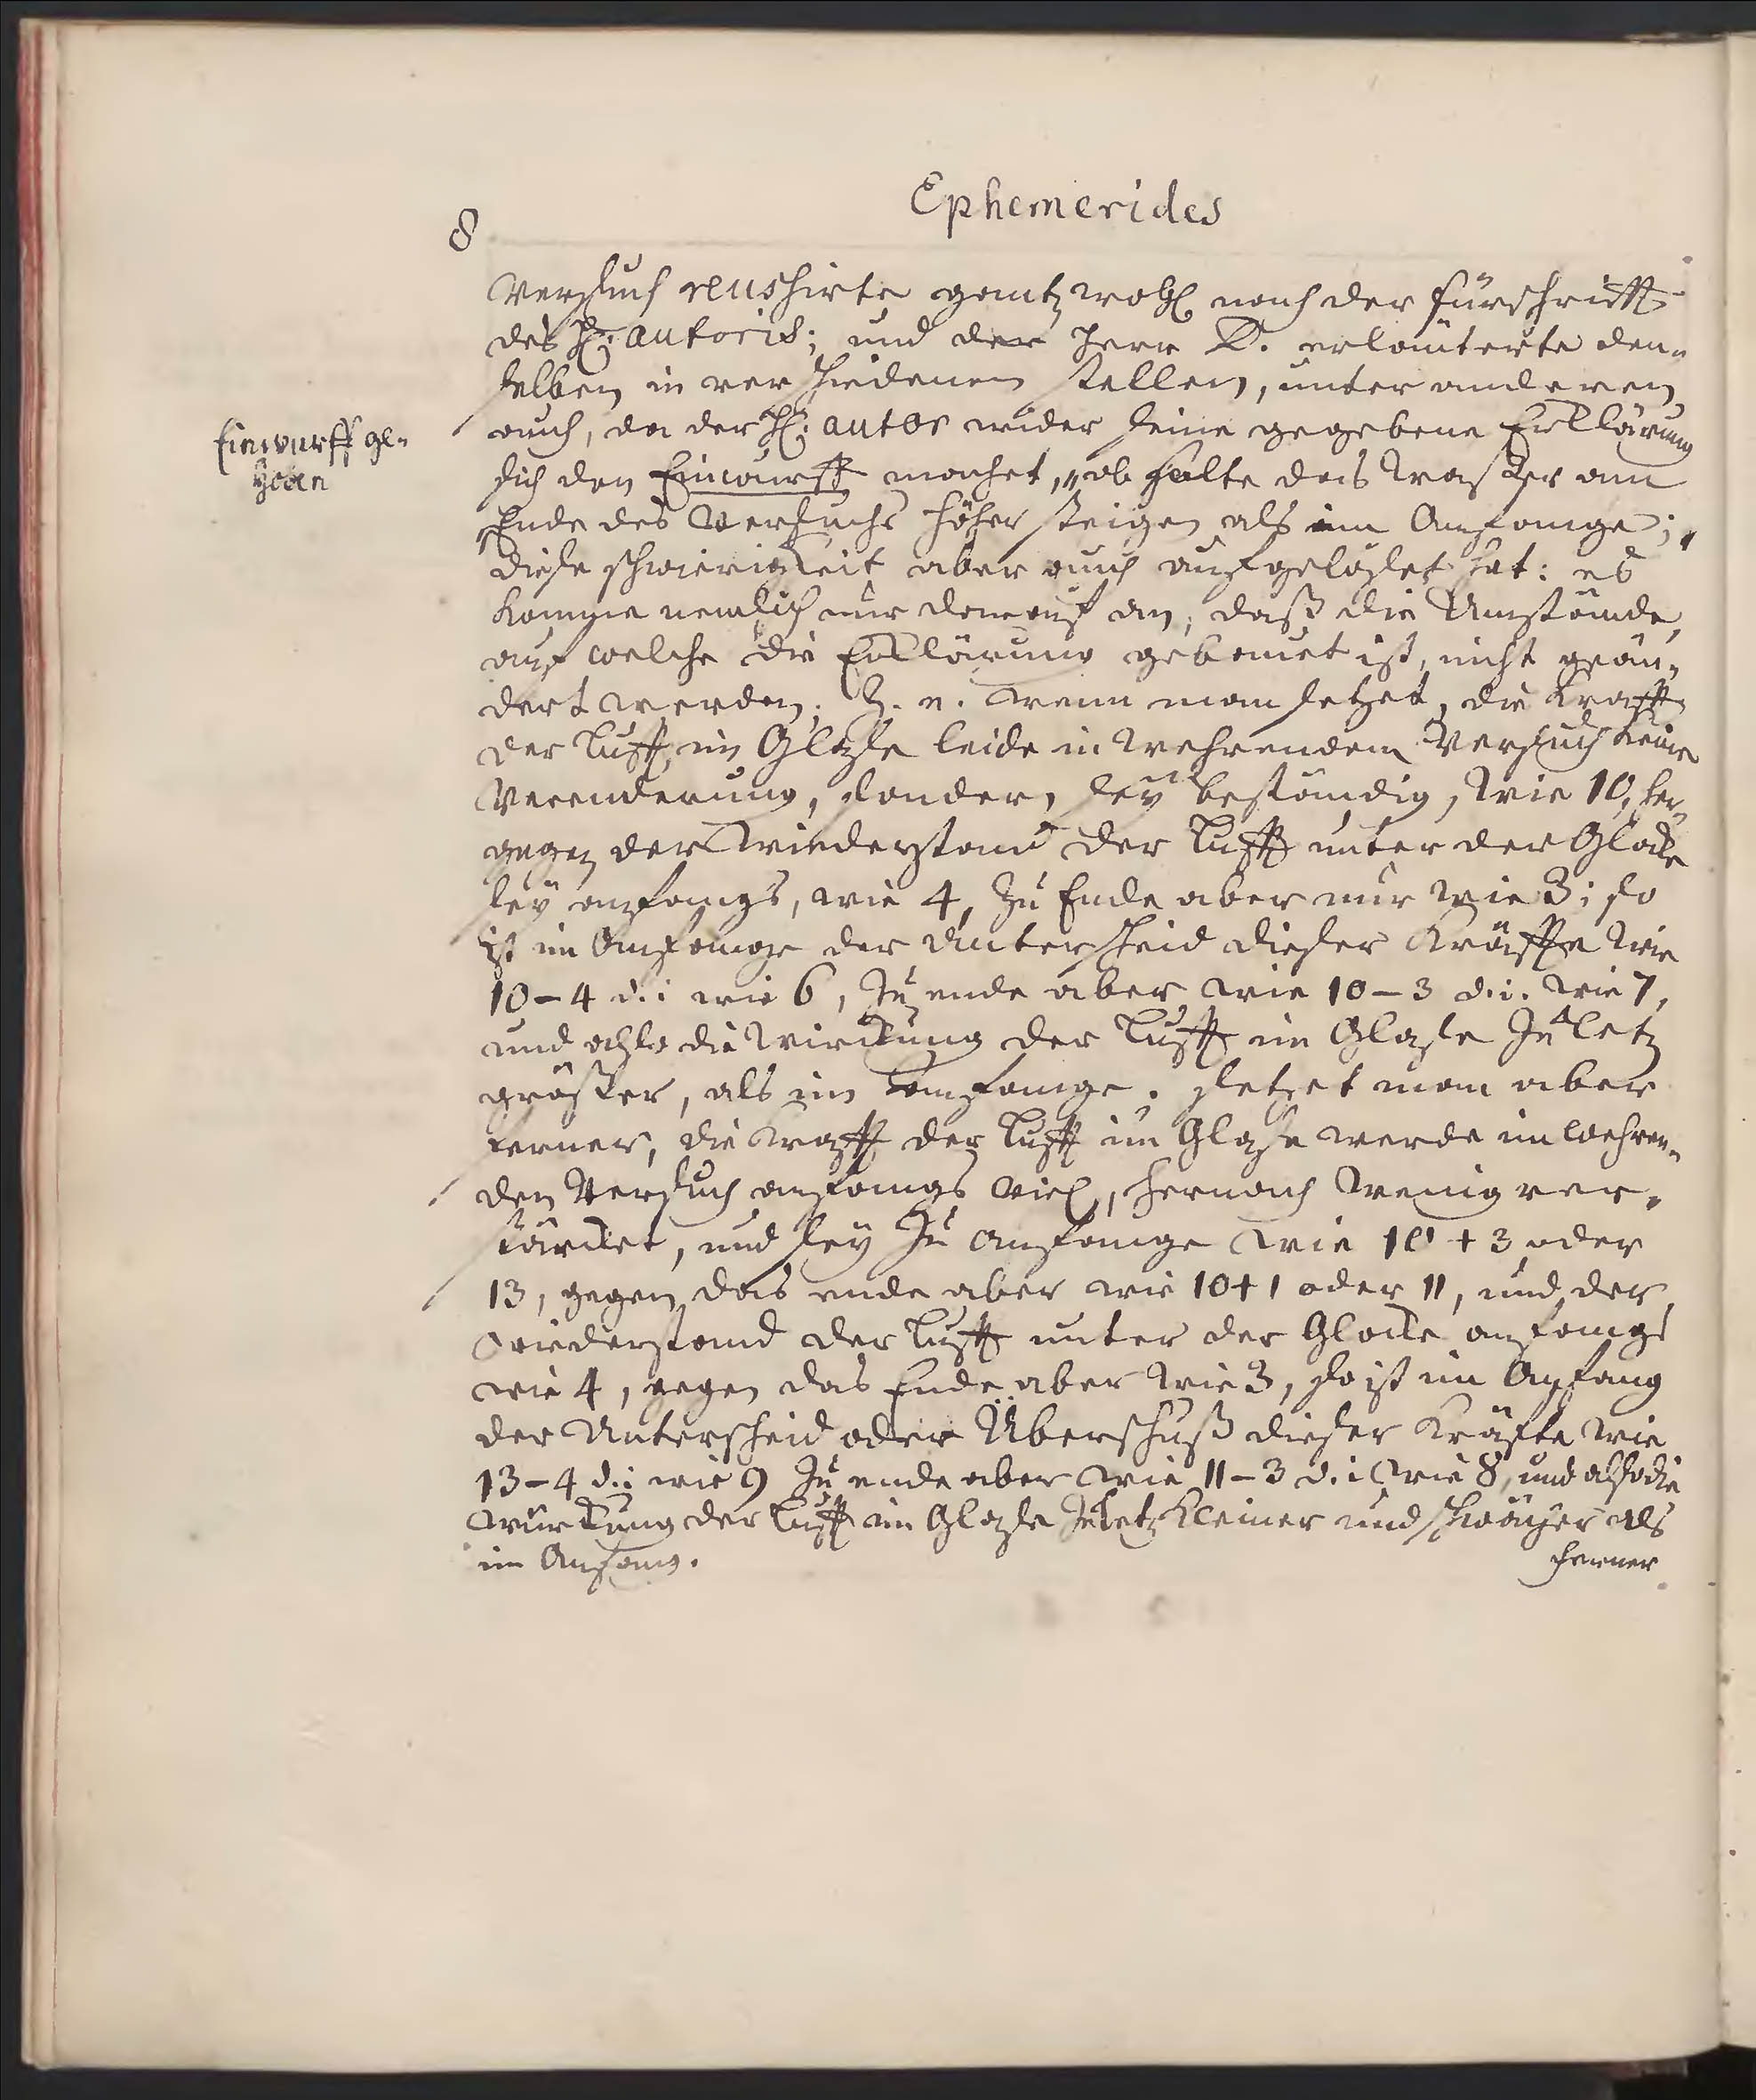 Ephemerides
8
Versuch reushirte gantz wohl nach der fürschrifft
des H: autoris; und der Herr D. erläuterte den„
selben in verschiedenen stellen, unter anderen
auch, da der H: autor wider seine gegebene Erklärung
Einwurff ge„
hoben
sich den Einwurff machet, „ob solte das Wasser am
„Ende des Versuchs höher steigen als im Anfange;„
diese schwierigkeit aber auch aufgelöset hat: es
komme nemlich nur darauf an, daß die Umstände,
auf welche die Erklärung gebauet ist, nicht geän„
dert werden. Z. e. wenn man setzet, die Krafft
der Lufft im Glase leide in wehrendem Versuch keine
Verenderung, sondern sey beständig, wie 10, her„
gegen der Wiederstand der Lufft unter der Glocke
sey anfangs, wie 4, zu Ende aber nur wie 3; so
ist im Anfange der unterscheid dieser Kräffte wie
10 – 4 d.i. wie 6, zu ende aber wie 10 – 3 d.i. wie 7,
und also die Wirckung der Lufft im Glase zu letz
grösser, als im Anfange. setzet man aber
ferner, die Krafft der Lufft im Glase werde im wehren„
den Versuch anfangs viel, hernach wenig ver„
stärcket, und sey zu Anfange wie 10 + 3 oder
13, gegen das ende aber wie 10 + 1 oder 11, und der
Wiederstand der Lufft unter der Glocke anfangs
wie 4, gegen das Ende aber wie 3, so ist im Anfang
der Unterscheid oder Überschuß dieser Kräfte wie
13 – 4 d.i. wie 9 zu ende aber wie 11 – 3 d.i. wie 8, und also die
Würckung der Lufft im Glase zu letz kleiner und schwächer als
im Anfang.
ferner